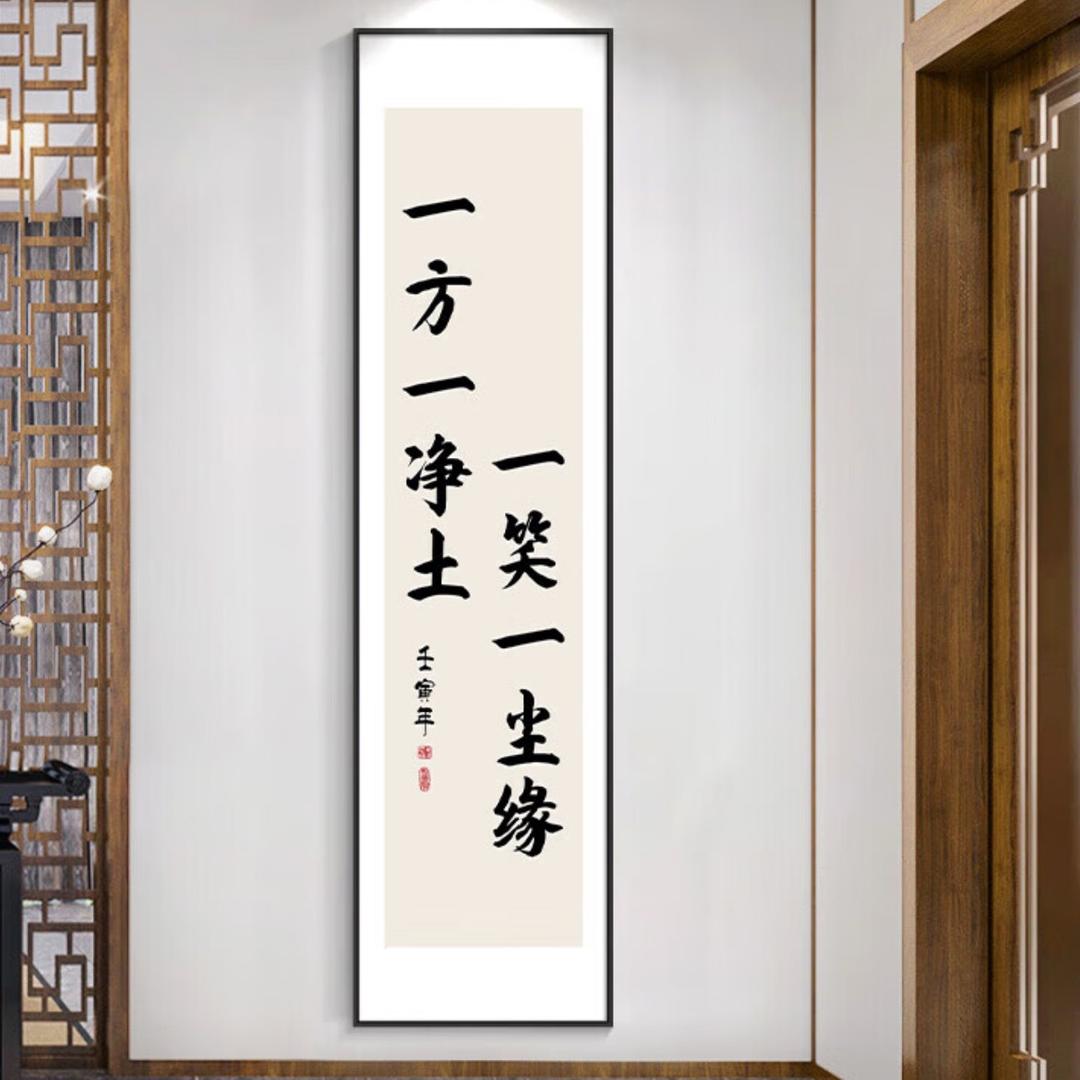 一方一净土
一笑一尘缘
壬寅年